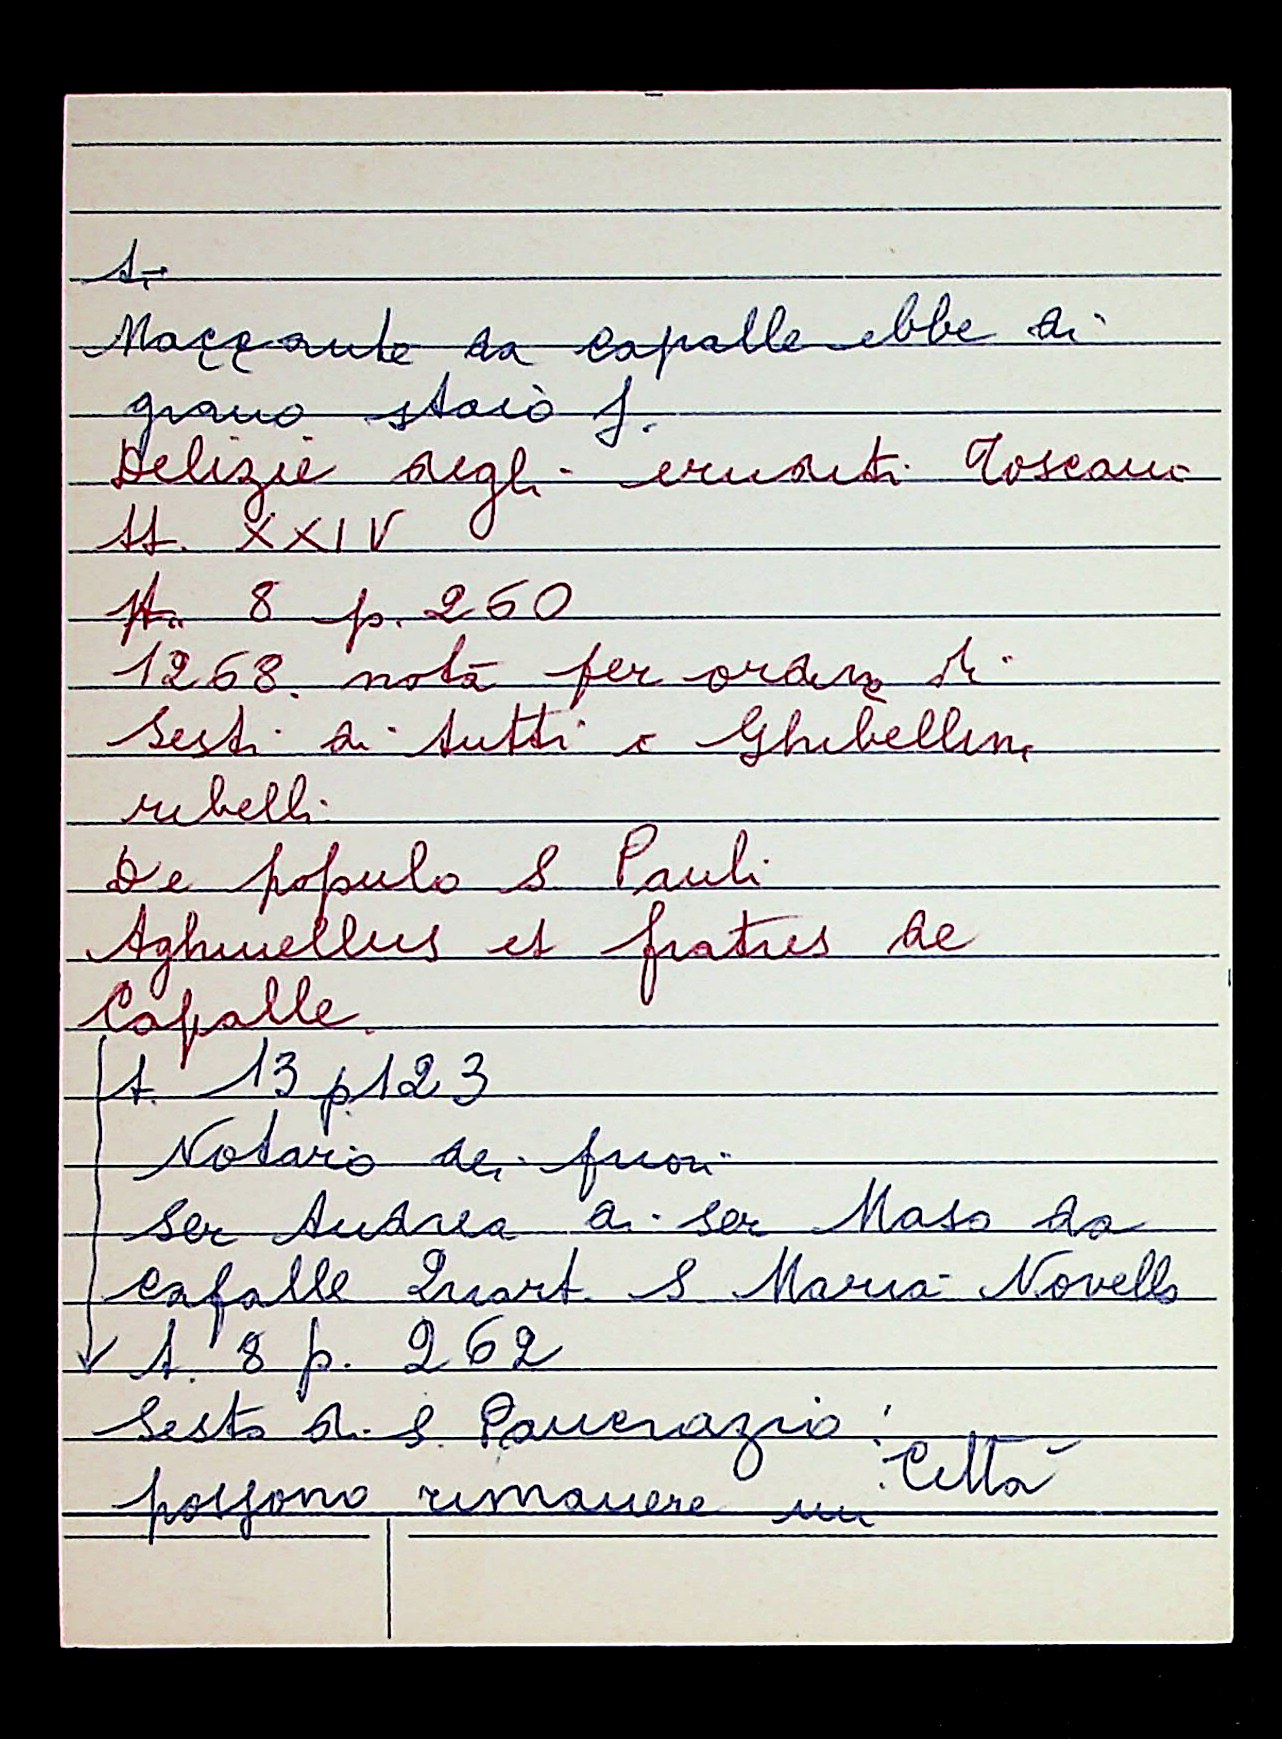 1.-
Mazzante da Capalle ebbe di
grano staio J.
Delizie degli eruditi Toscani
tt. XXIV
t. 8 p. 260
1268. nota per ordine di
Sesti di tutti i Ghibellini
ribelli
De populo S Pauli
Aghinellus et fratres de
Capalle.
t. 13 p. 123
Notario dei fuori
Ser Andrea di ser Maso da
Capalle Quart. S Maria Novella
t. 8 p. 262
Sesto di S. Pancrazio:
possono rimanere in Città